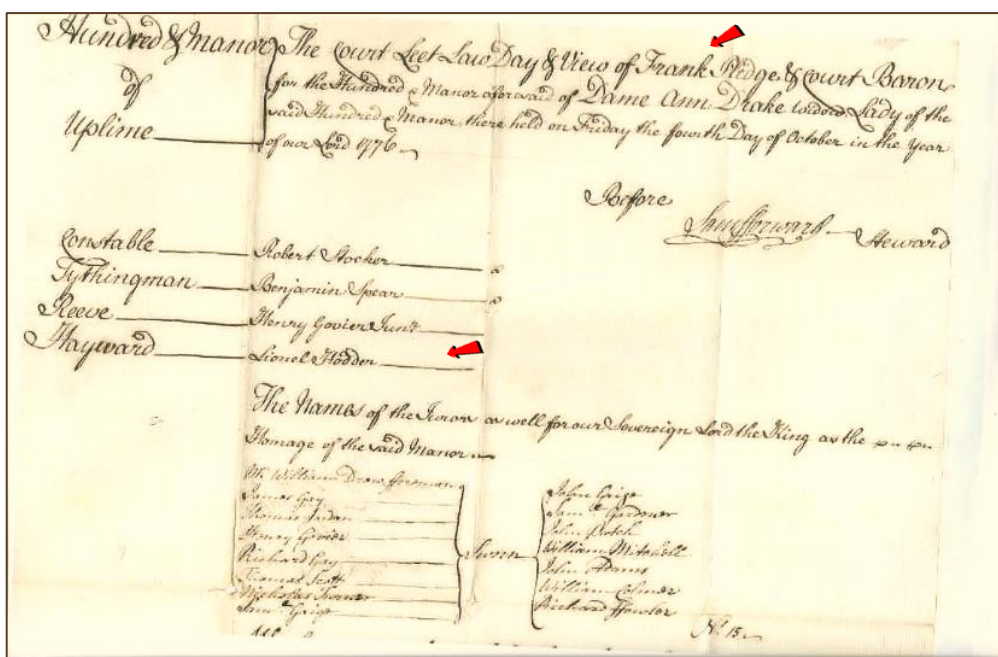 Hundred & Manor
of
Uplime
The Court Leet Law Day & View of Frank Pledge & Court Baron
for the Hundred & Manor aforesaid of Dame Ann Drake widow Lady of the
said Hundred & Manor there held on Friday the fourth Day of October in the Year
of our Lord 1776
Before
Steward
Constable Robert Stocker
Tythingman Benjamin Spear
Reeve Henry Govier Junr
Hayward Lionel Hodder
The Names of the Jurors as well for our Sovereign Lord the King as the
Homage of the said Manor
Mr William Drew fforeman
James Gay
Thomas Jordan
Henry Govier
Richard Gay
Thomas Scott
Nicholas Turner
Saml Grige
Sworn
John Grige
Saml Gardner
John Potch
William Mitchell
John Adams
William Colmer
Richard ffowler
No 15